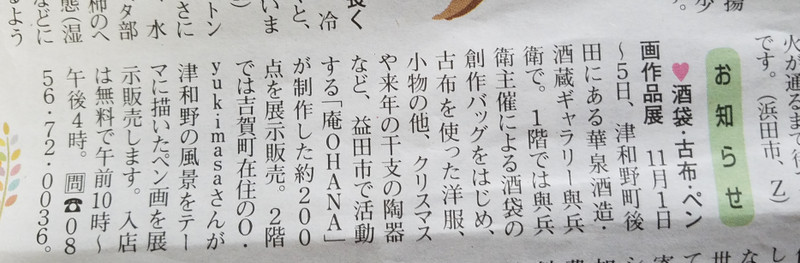 火が通るまで待
です。(浜田市、Z)
お知らせ
♥酒袋・古布・ペン
画作品展 11月1日
〜5日、津和野町後
田にある華泉酒造・
酒蔵ギャラリー與兵
衛で。1階では與兵
衛主催による酒袋の
創作バッグをはじめ、
古布を使った洋服、
小物の他、クリスマス
や来年の干支の陶器
など、益田市で活動
する「庵OHANA」
が制作した約200
点を展示販売。2階
では吉賀町在住のO・
yukimasaさんが
津和野の風景をテー
マに描いたペン画を展
示販売します。入店
は無料で午前10時〜
午後4時。問☎08
56・72・0036。
冷
いま
トン
さに
水
タ部
柿のへ
態(湿
などに
るよう